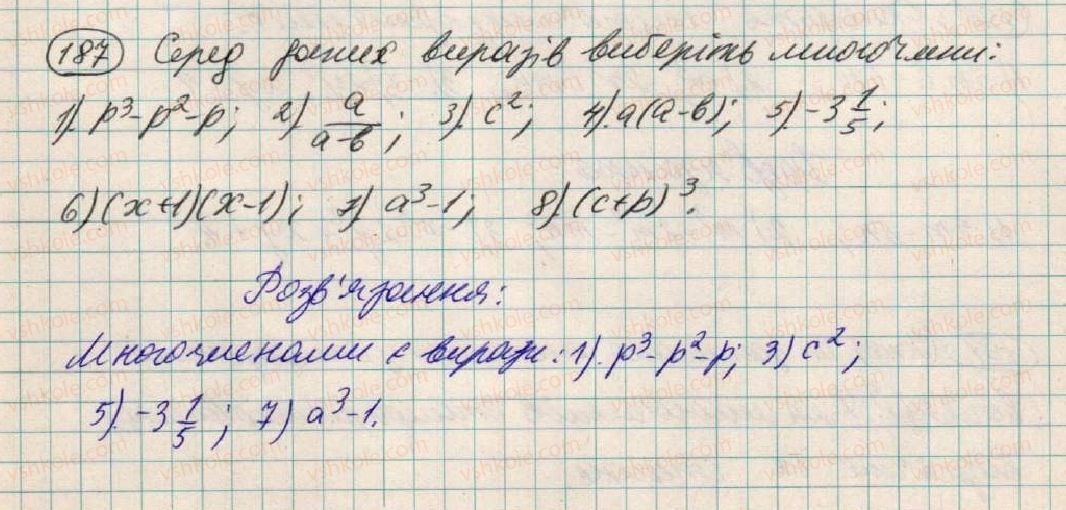 187 Серед даних виразів виберіть многочлени:
1). p³-p²-p; 2) a/(a-b); 3). c²; 4). a(a-b); 5). -3 1/5;
6) (x+1)(x-1); 7) a³-1; 8) (c+p)³.
Розв'язання:
Многочленами є вирази: 1). p³-p²-p; 3) c²;
5). -3 1/5; 7) a³-1.